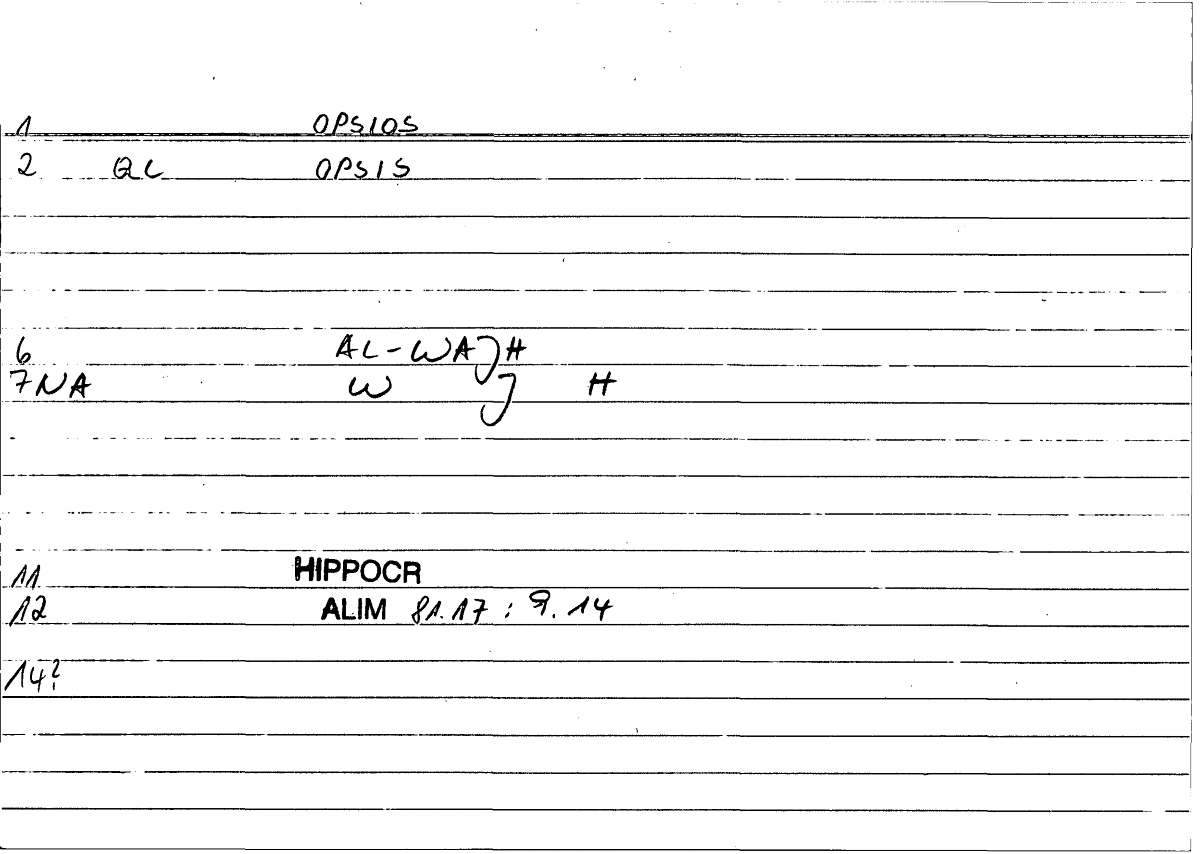 1 OPSIOS
2 QL OPSIS
6 AL-WAJH
7 NA W J H
11 HIPPOCR
12 ALIM 81.17 : 9.14
14?